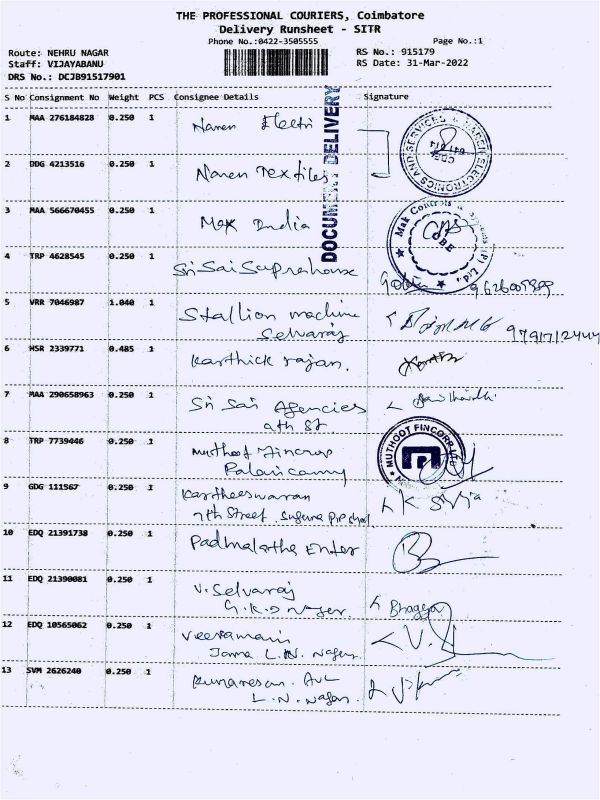 THE PROFESSIONAL COURIERS, Coimbatore
Delivery Runsheet - SITR
Phone No.:0422-3505555 Page No.:1
Route: NEHRU NAGAR RS No.: 915179
Staff: VIJAYABANU RS Date: 31-Mar-2022
DRS No.: DCJB91517901
S No Consignment No Weight PCS Consignee Details Signature
DOCUMENT DELIVERY
1 MAA 276184828 0.250 1 Naren Electri
2 DDG 4213516 0.250 1 Naren Textiles
3 MAA 566670455 0.250 1 Mak India
4 TRP 4628545 0.250 1 Sri Sai
5 VRR 7046987 1.040 1 Stallion machine
Selvaraj
6 HSR 2339771 0.485 1 Karthick rajan.
7 MAA 290658963 0.250 1 Sri Sai Agencies
8 TRP 7739446 0.250 1 Muthoot Fincrop
MUTHOOT FINCORP LTD
9 GDG 111567 0.250 1 Kartheeswaran
7th Street.
10 EDQ 21391738 0.250 1 Padmalatha Enter
11 EDQ 21390081 0.250 1 V. Selvaraj
Bhagya
12 EDQ 10565062 0.250 1 Veeramani
L.N. Nagar.
13 SVM 2626240 0.250 1 Kumaresan. AVL
L.N. Nagar.